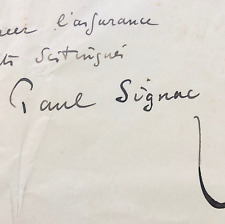 l'assurance
distingués
Paul Signac